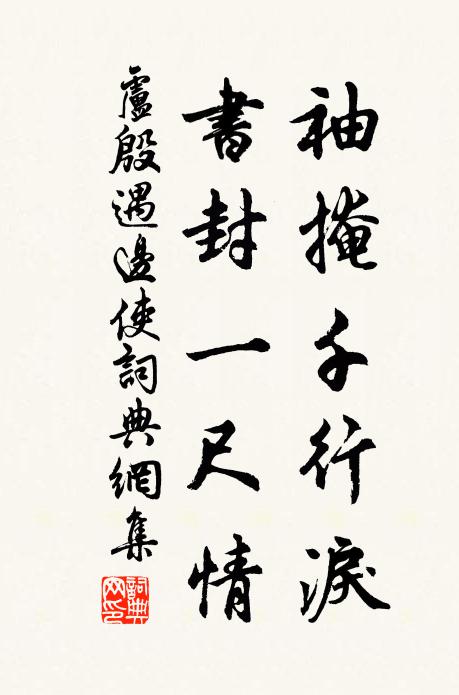 袖掩千行淚
書封一尺情
盧殷遇邊使詞典網集
詞典網印